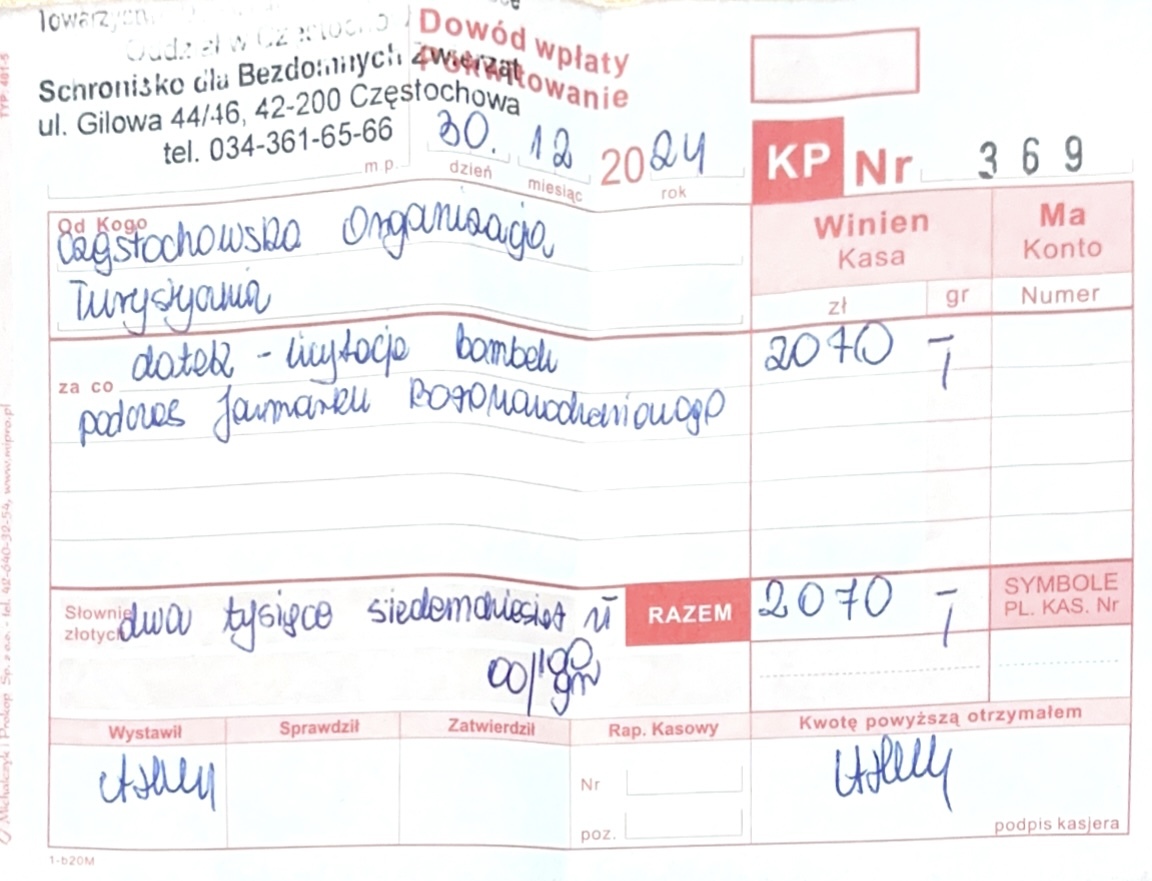 Oddział w Częstocho
Schronisko dla Bezdomnych Zwierząt
ul. Gilowa 44/46, 42-200 Częstochowa
tel. 034-361-65-66
m p.
Dowód wpłaty
Pokwitowanie
30. 12 2024
dzień miesiąc rok
KP Nr 369
Od Kogo
Częstochowska Organizacja
Turystyczna
Winien
Kasa
Ma
Konto
zł gr Numer
za co datek - licytacja bombek 2070 -
podczas Jarmarku Bożonarodzeniowego
Słownie
złotych dwa tysiące siedemdziesiąt zł
00/100
gr
RAZEM 2070 -
SYMBOLE
PL. KAS. Nr
Wystawił Sprawdził Zatwierdził Rap. Kasowy Kwotę powyższą otrzymałem
Nr
poz.
podpis kasjera
1-b20M
TYP: 401-5
© Michalczyk i Prokop Sp. z o.o. - tel. 42-640-32-54, www.mipro.pl